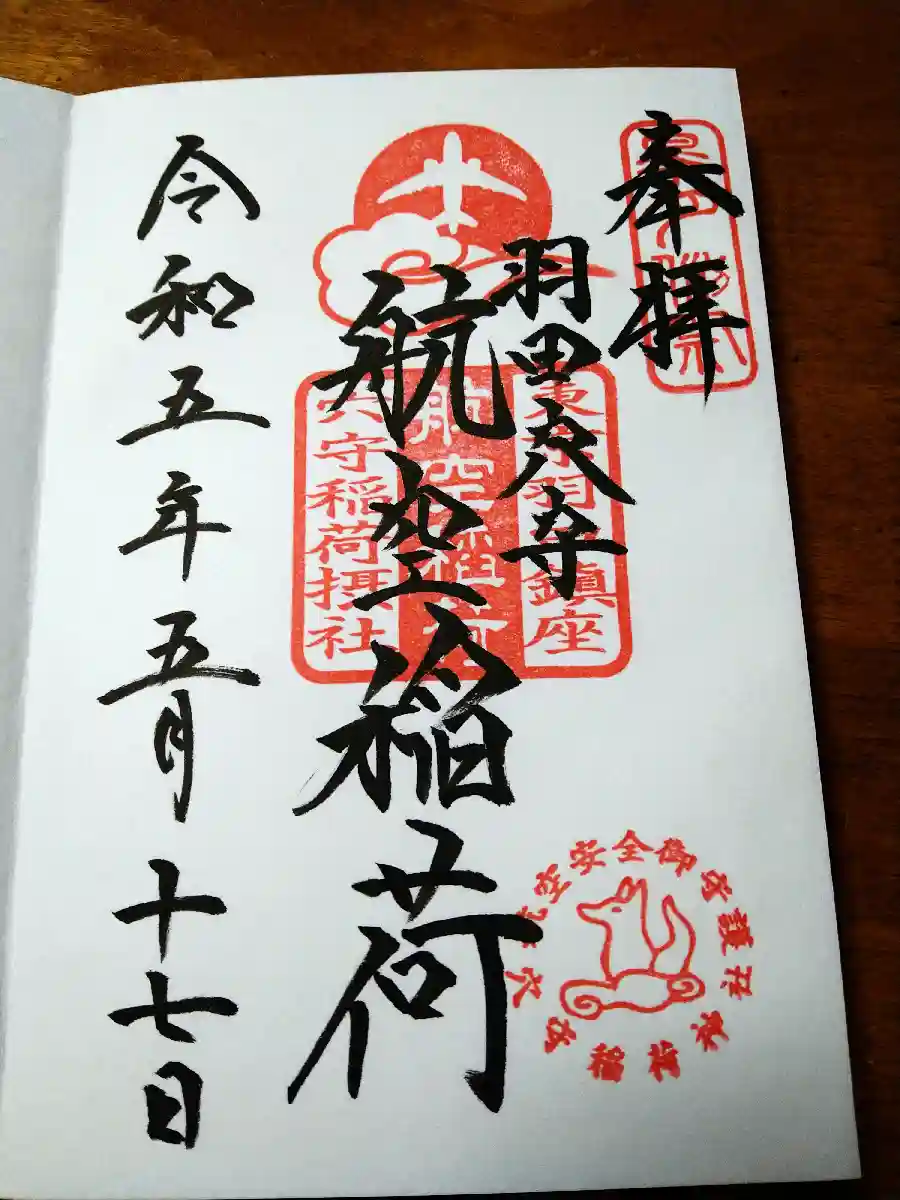 奉拝
羽田穴守
東京羽田鎮座
航空稲荷
航空稲荷
穴守稲荷摂社
令和五年五月十七日
航空安全御守護
穴守稲荷神社